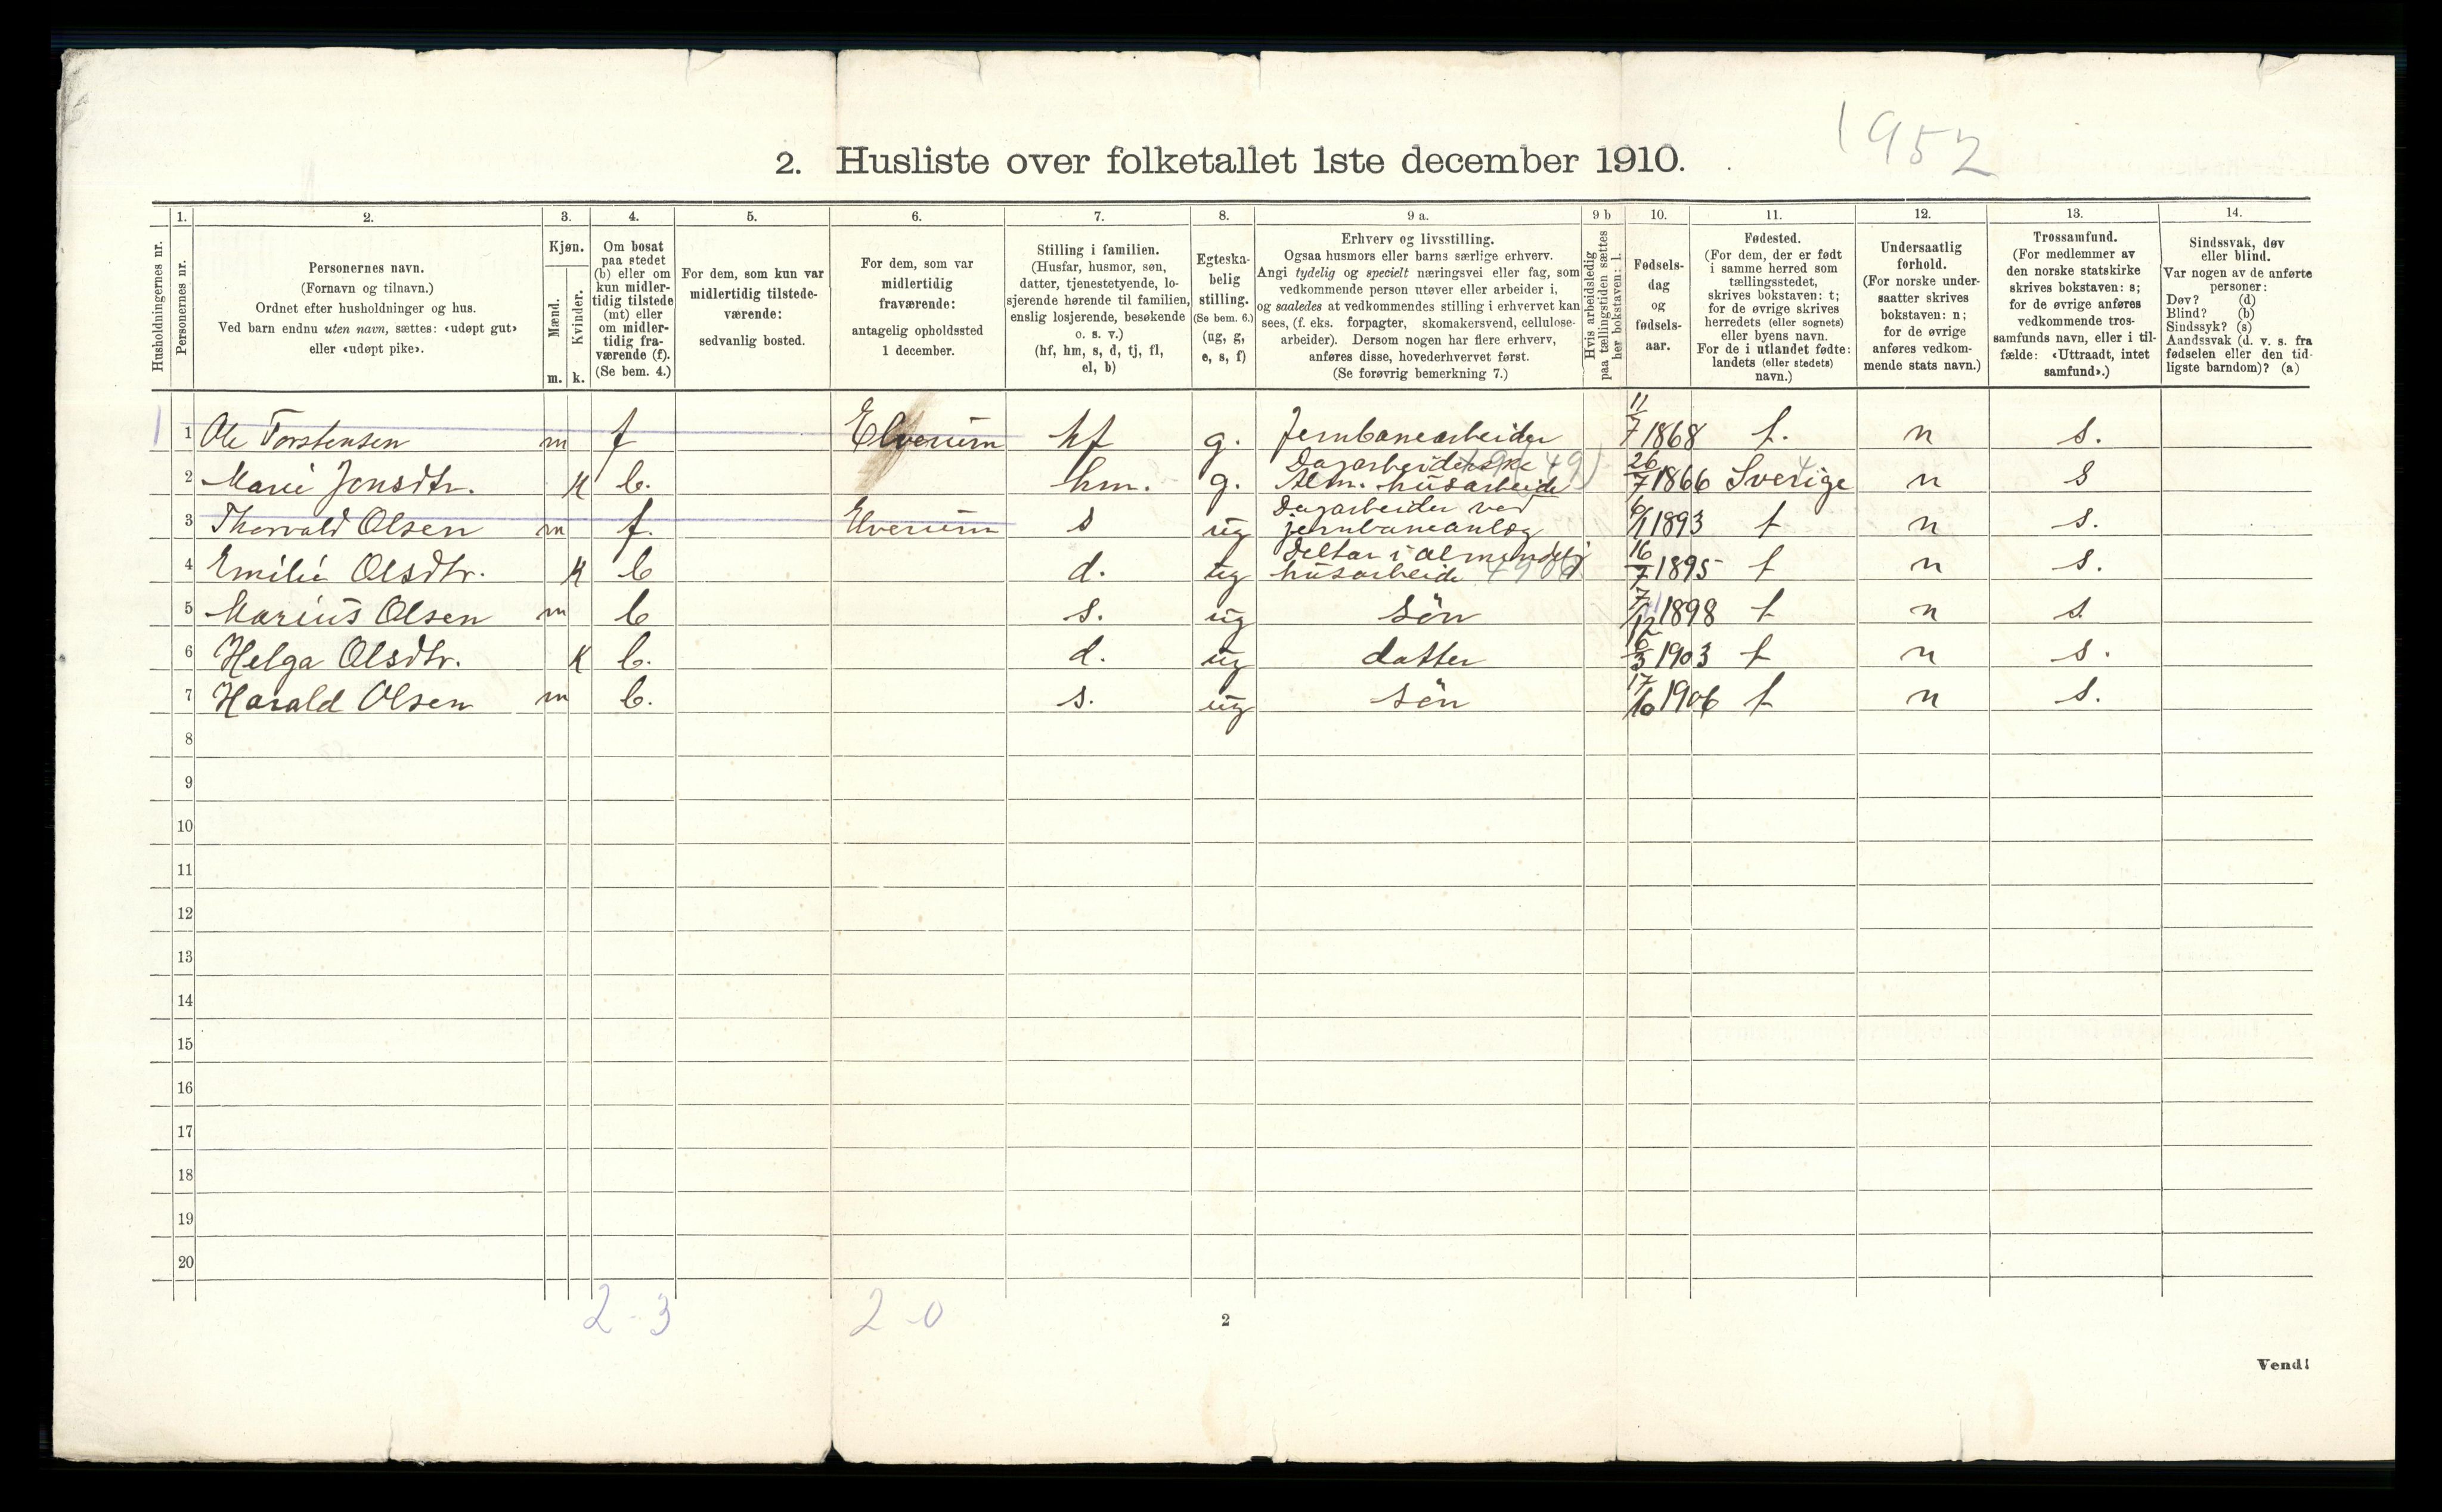 1952
2. Husliste over folketallet 1ste december 1910.
1. 2. 3. 4. 5. 6. 7. 8. 9 a. 9 b 10. 11. 12. 13. 14.
Husholdningernes nr.
Personernes nr.
Personernes navn.
(Fornavn og tilnavn.)
Ordnet efter husholdninger og hus.
Ved barn endnu uten navn, sættes: «udøpt gut»
eller «udøpt pike».
Kjøn.
Mænd.
Kvinder.
m. k.
Om bosat
paa stedet
(b) eller om
kun midler-
tidig tilstede
(mt) eller
om midler-
tidig fra-
værende (f).
(Se bem. 4.)
For dem, som kun var
midlertidig tilstede-
værende:
sedvanlig bosted.
For dem, som var
midlertidig
fraværende:
antagelig opholdssted
1 december.
Stilling i familien.
(Husfar, husmor, søn,
datter, tjenestetyende, lo-
sjerende hørende til familien,
enslig losjerende, besøkende
o. s. v.)
(hf, hm, s, d, tj, fl,
el, b)
Egteska-
belig
stilling.
(Se bem. 6.)
(ug, g,
e, s, f)
Erhverv og livsstilling.
Ogsaa husmors eller barns særlige erhverv.
Angi tydelig og specielt næringsvei eller fag, som
vedkommende person utøver eller arbeider i,
og saaledes at vedkommendes stilling i erhvervet kan
sees, (f. eks. forpagter, skomakersvend, cellulose-
arbeider). Dersom nogen har flere erhverv,
anføres disse, hovederhvervet først.
(Se forøvrig bemerkning 7.)
Hvis arbeidsledig
paa tællingstiden sættes
her bokstaven: l.
Fødsels-
dag
og
fødsels-
aar.
Fødested.
(For dem, der er født
i samme herred som
tællingsstedet,
skrives bokstaven: t;
for de øvrige skrives
herredets (eller sognets)
eller byens navn.
For de i utlandet fødte:
landets (eller stedets)
navn.)
Undersaatlig
forhold.
(For norske under-
saatter skrives
bokstaven: n;
for de øvrige
anføres vedkom-
mende stats navn.)
Trossamfund.
(For medlemmer av
den norske statskirke
skrives bokstaven: s;
for de øvrige anføres
vedkommende tros-
samfunds navn, eller i til-
fælde: «Uttraadt, intet
samfund».)
Sindssvak, døv
eller blind.
Var nogen av de anførte
personer:
Døv? (d)
Blind? (b)
Sindssyk? (s)
Aandssvak (d. v. s. fra
fødselen eller den tid-
ligste barndom)? (a)
1 1 Ole Torstensen m f Elverum hf g. Jernbanearbeider 11/7 1868 t. n s.
2 Marie Jonsdtr. k b. hm. g. Dagarbeiderske Alm. husarbeide 26/7 1866 Sverige n s
3 Thorvald Olsen m f. Elverum s ug Dagarbeider ved jernbaneanlæg 6/1 1893 t n s.
4 Emilie Olsdtr. k b d. ug Deltar i almindelig husarbeide 16/7 1895 t n s.
5 Marius Olsen m b s. ug søn 7/12 1898 t n s
6 Helga Olsdtr. k b. d. ug datter 1903 t n s.
7 Harald Olsen m b. s. ug søn 17/10 1906 t n s.
8
9
10
11
12
13
14
15
16
17
18
19
20
2-3 2-0
2
Vend!